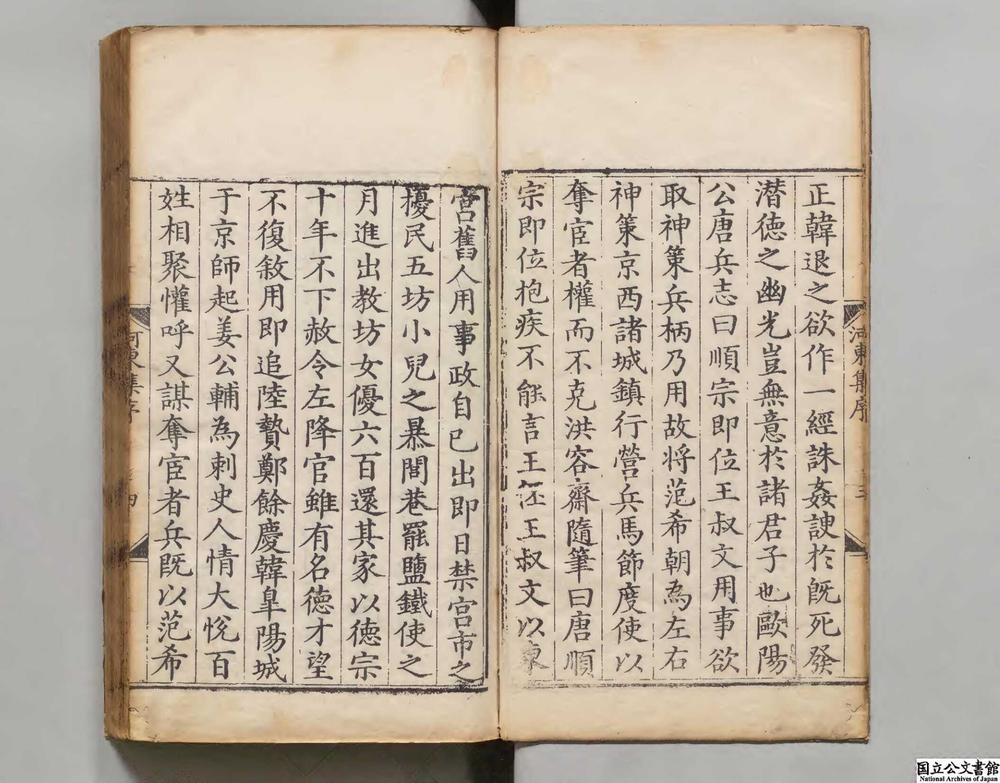 正韓退之欲作一經誅姦諛於既死發
潜徳之幽光豈無意於諸君子也歐陽
公唐兵志曰順宗即位王叔文用事欲
取神策兵柄乃用故将范希朝為左右
神策京西諸城鎮行營兵馬節度使以
奪宦者權而不克洪容齋隨筆曰唐順
宗即位抱疾不能言王伾王叔文以東
宮舊人用事政自已出即日禁宮市之
擾民五坊小兒之暴閭巷罷鹽鐵使之
月進出教坊女優六百還其家以徳宗
十年不下赦令左降官雖有名徳才望
不復敘用即追陸贄鄭餘慶韓臯陽城
于京師起姜公輔為刺史人情大悅百
姓相聚懽呼又謀奪宦者兵既以范希
河東集序
三
河東集序
四
国立公文書館
National Archives of Japan